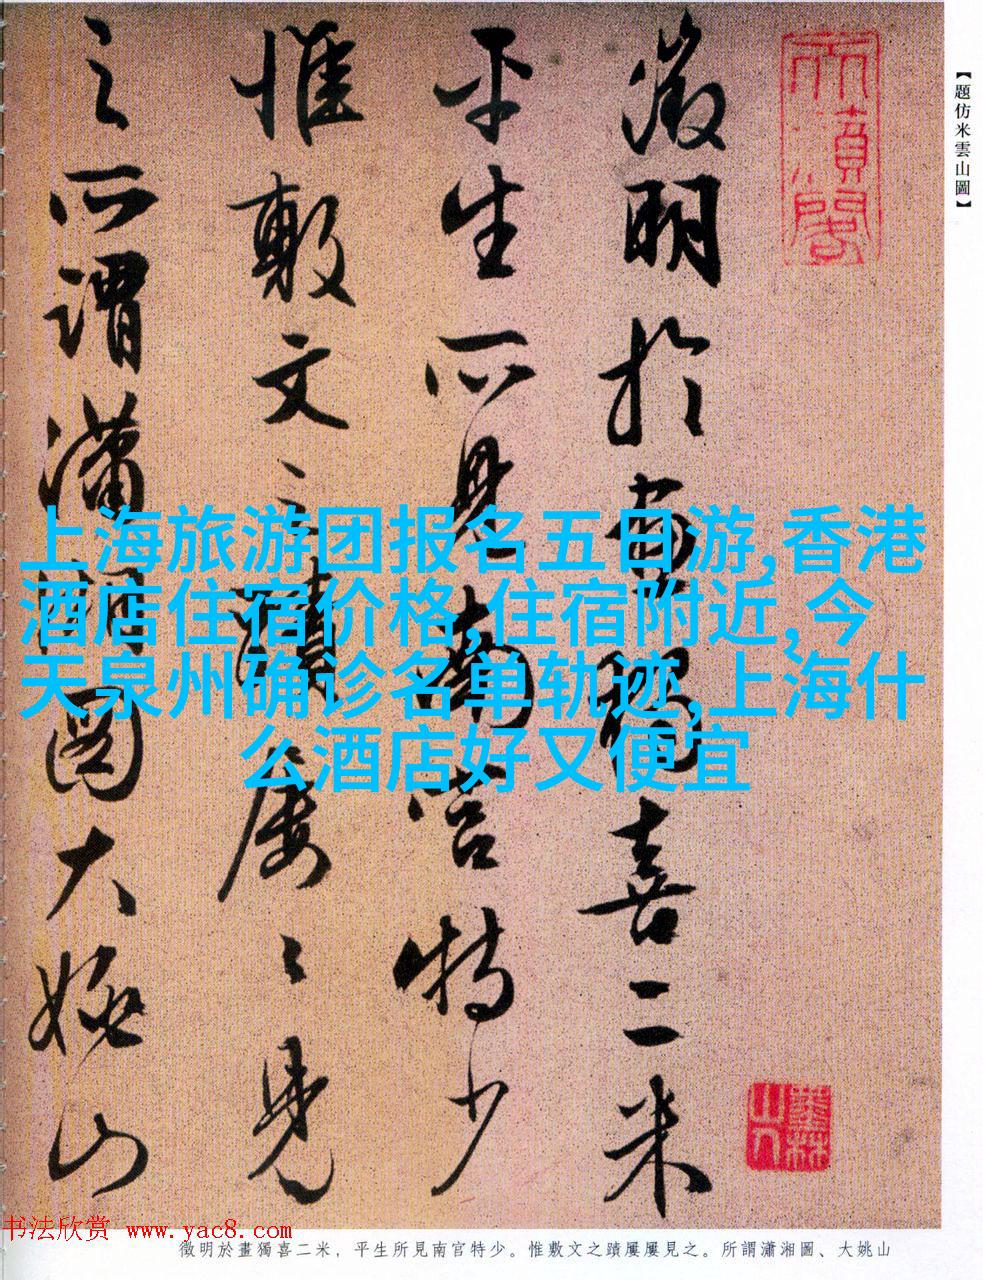 【題仿米雲山圖】
徵明於畫獨喜二米
平生所見南宮特少
惟敷文之蹟屢〻見
之所謂瀟湘圖大姚山
墨林山人
上海旅游团报名五日游,香港
酒店住宿价格,住宿附近,今
天泉州确诊名单轨迹,上海什
么酒店好又便宜
书法欣赏 www.yac8.com
徵明於畫獨喜二米，平生所見南官特少。惟敷文之蹟屢屢見之。所謂瀟湘圖、大姚山